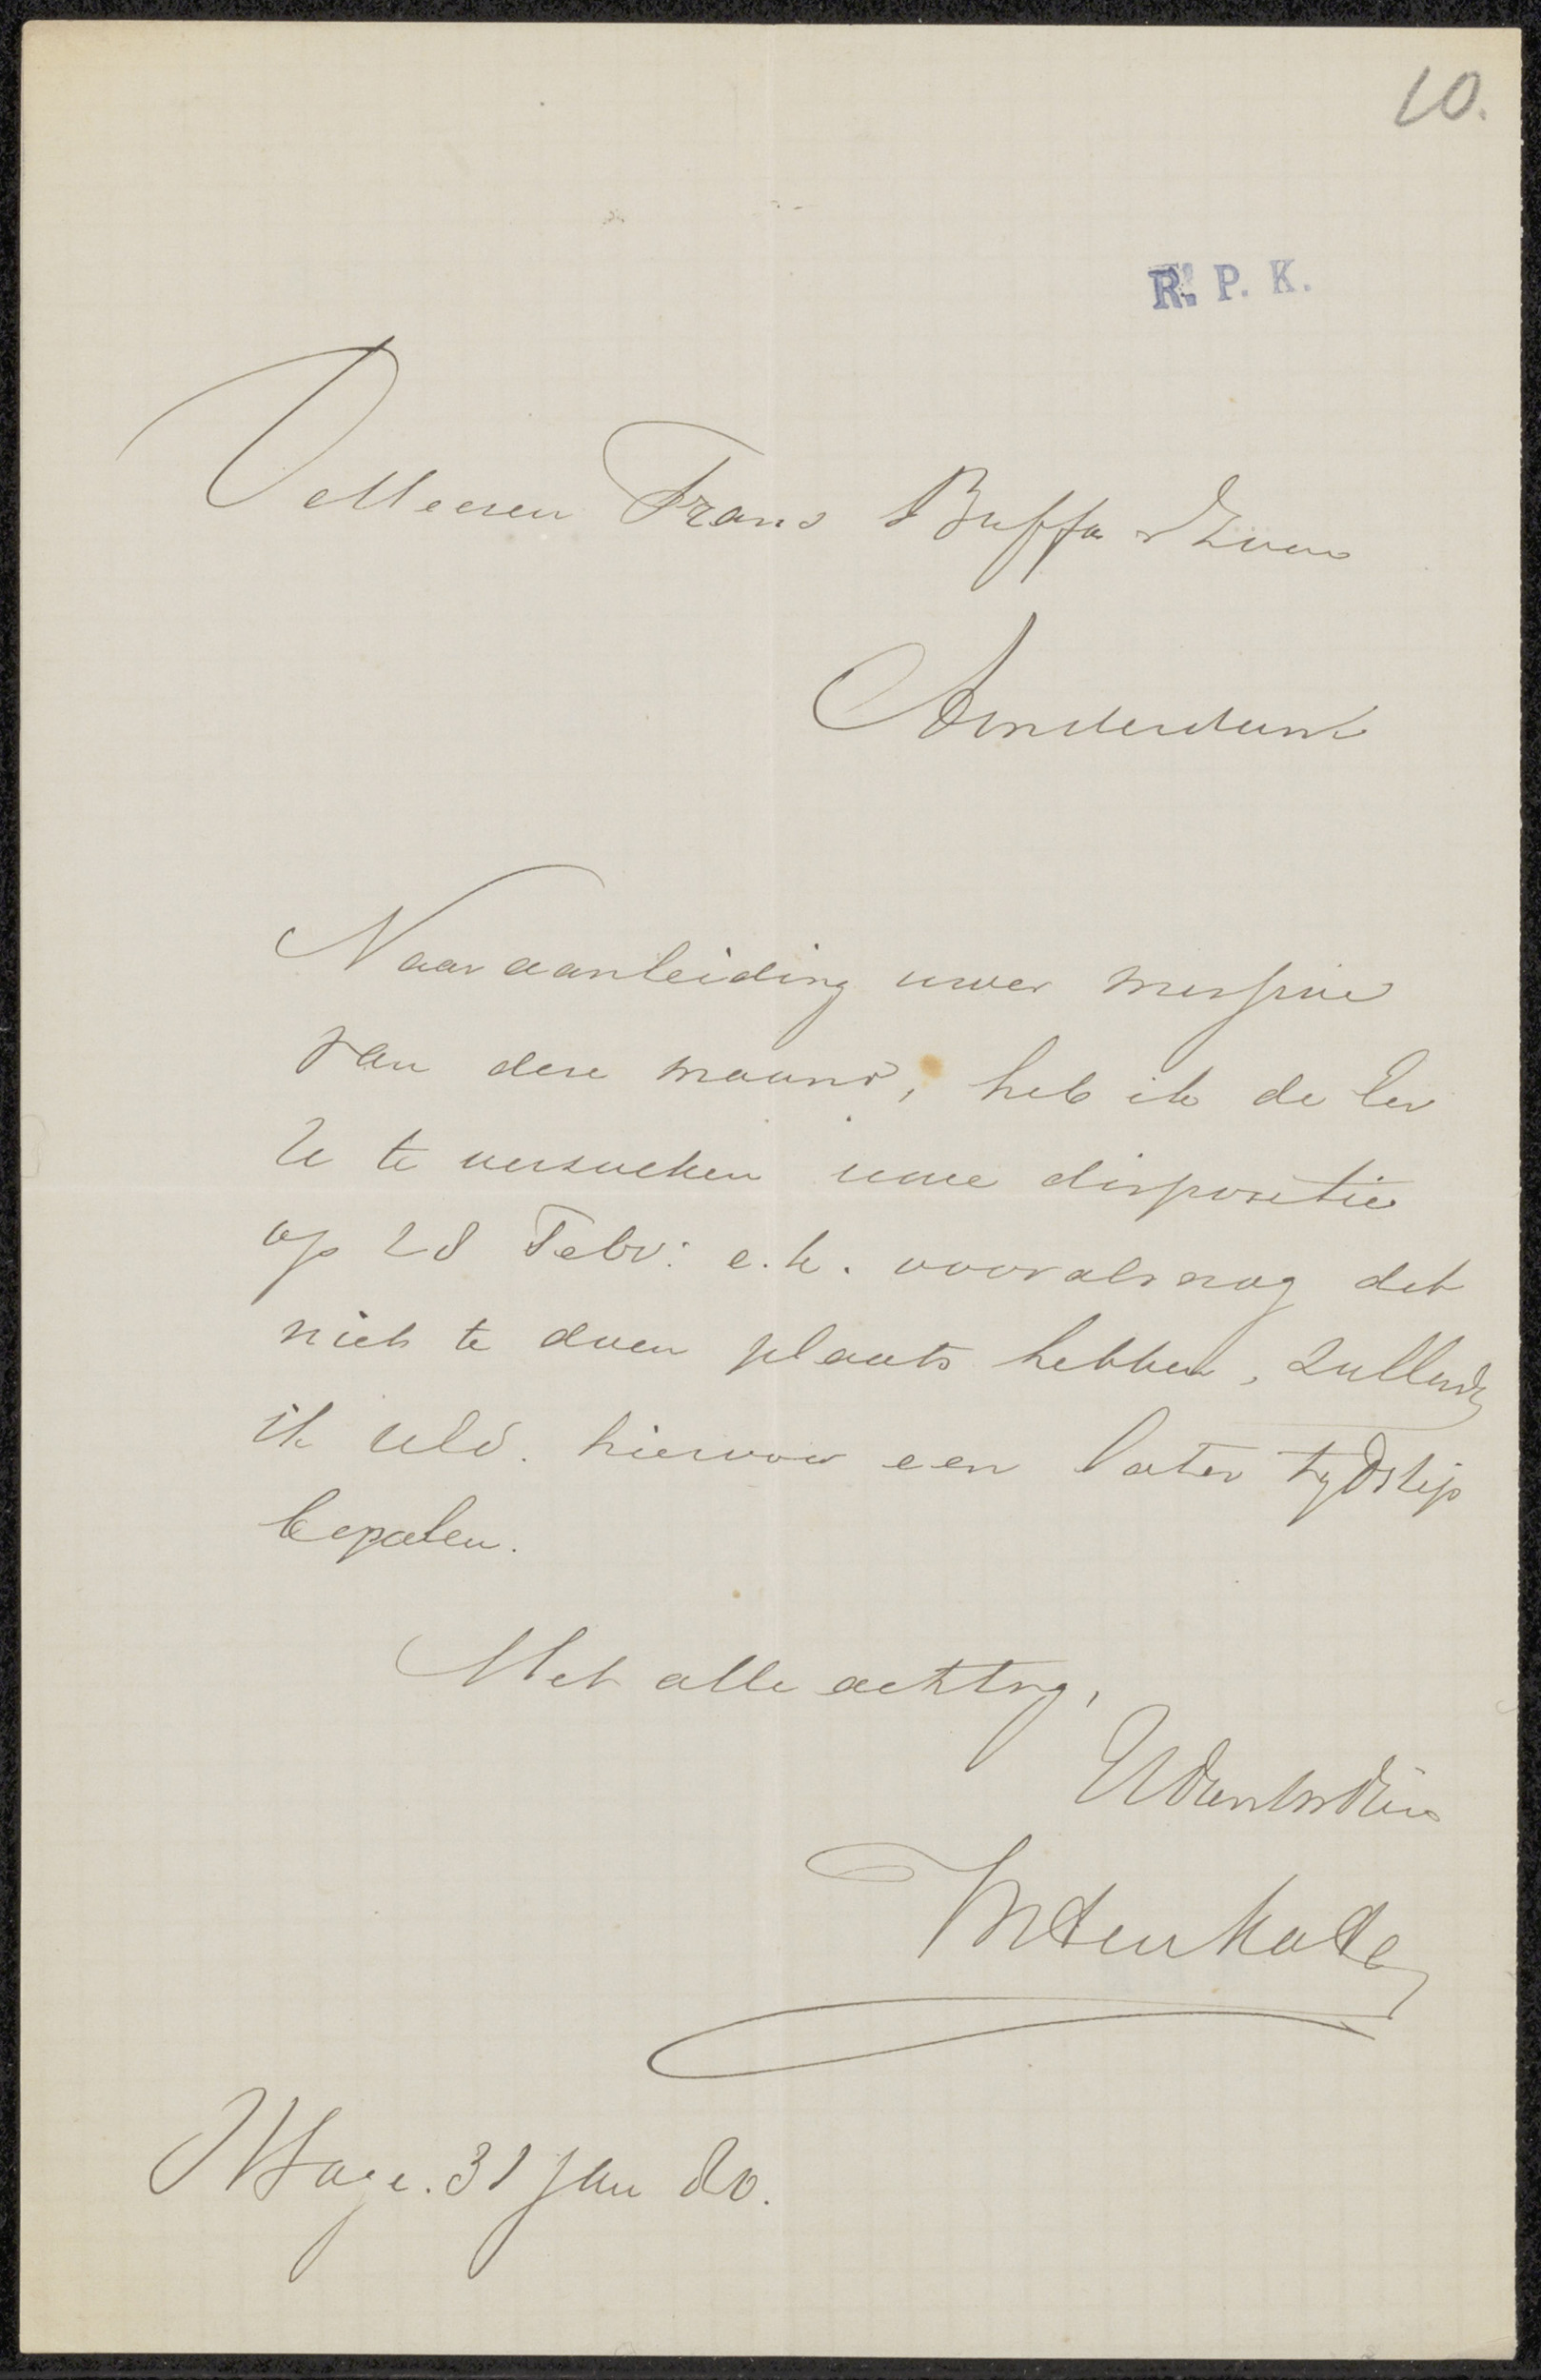 10.
R. P. K.
De Heeren Frans Buffa & Zonen
Amsterdam
Naar aanleiding uwer missive
van deze maand, heb ik de Eer
U te verzoeken uwe dispositie
op 28 Febr: e.k. vooralsnog det
niet te doen plaats hebben, zullende
ik UEd. hiervoor een later tydstip
bepalen.
Met alle achting,
UEd
ten Kate
Hage. 31 Jan 80.